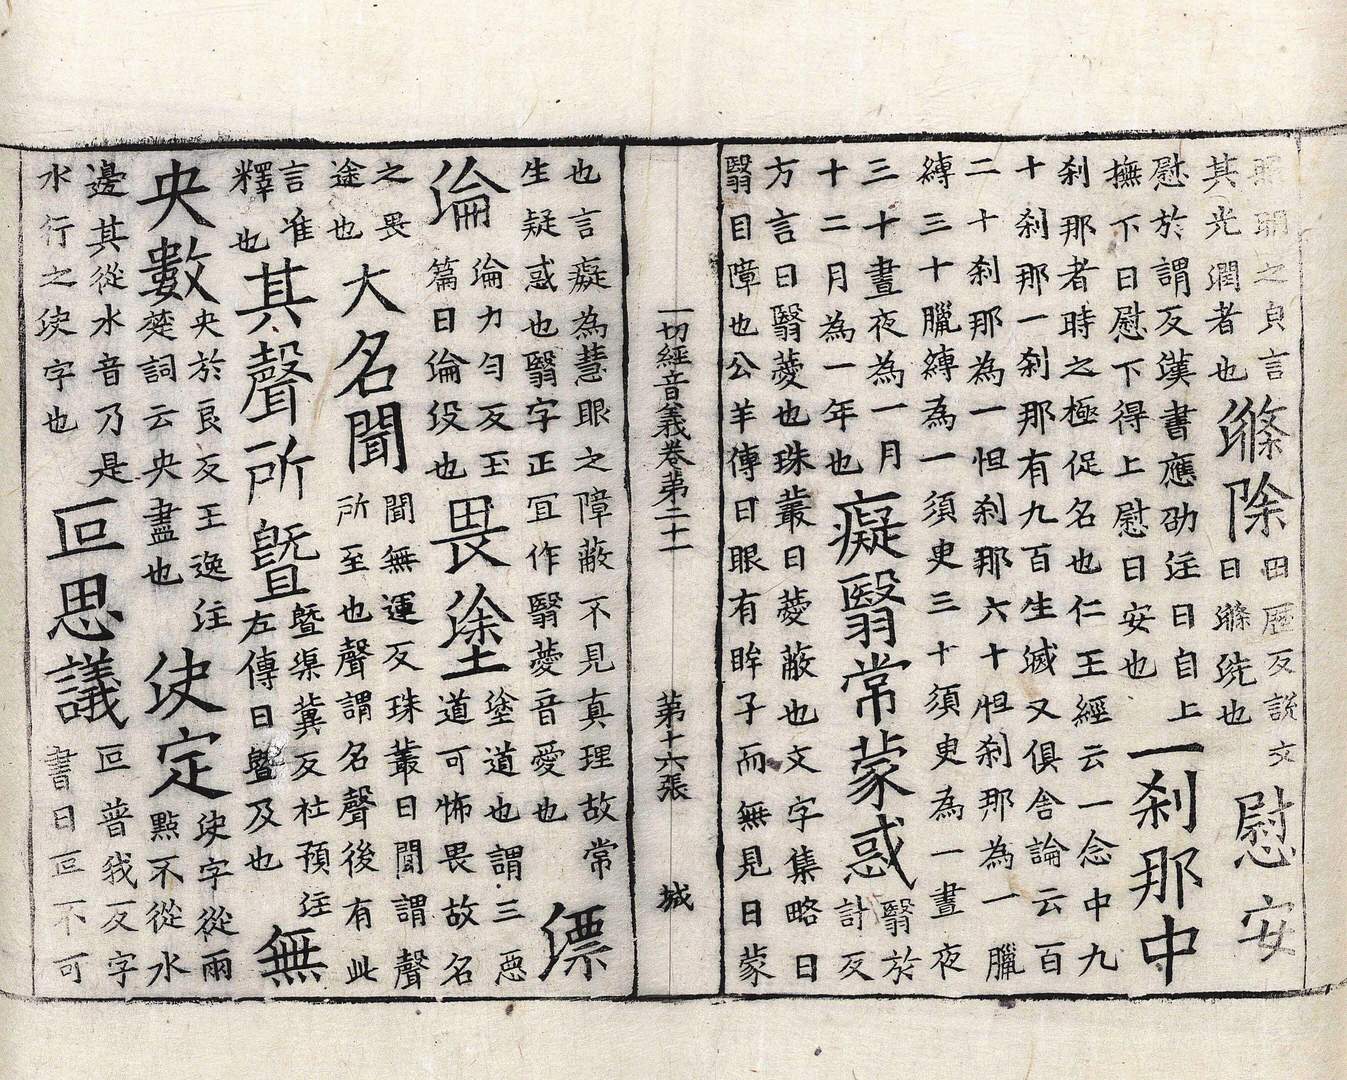 照朗之貞言
其光潤者也
滌除
田歷反說文
曰滌洗也
慰安
慰於謂反漢書應劭注曰自上
撫下曰慰下得上慰曰安也
一刹那中
刹那者時之極促名也仁王經云一念中九
十刹那一刹那有九百生滅又俱舍論云百
二十刹那為一怛刹那六十怛刹那為一臘
縛三十臘縛為一須臾三十須臾為一晝夜
三十晝夜為一月
十二月為一年也
癡翳常蒙惑
翳於
計反
方言曰翳薆也珠叢曰薆蔽也文字集略曰
翳目障也公羊傳曰眼有眸子而無見曰蒙
一切經音義卷第二十一 第十六張 城
也言癡為慧眼之障蔽不見真理故常
生疑惑也翳字正冝作瞖薆音愛也
漂
淪
淪力勻反玉
篇曰淪沒也
畏塗
塗道也謂三惡
道可怖畏故名
之畏
途也
大名聞
聞無運反珠叢曰聞謂聲
所至也聲謂名聲後有此
言准
釋也
其聲所曁
曁渠冀反杜預注
左傳曰曁及也
無
央數
央於良反王逸注
楚詞云央盡也
決定
決字從兩
點不從水
邊其從水音乃是
水行之決字也
叵思議
叵普我反字
書曰叵不可